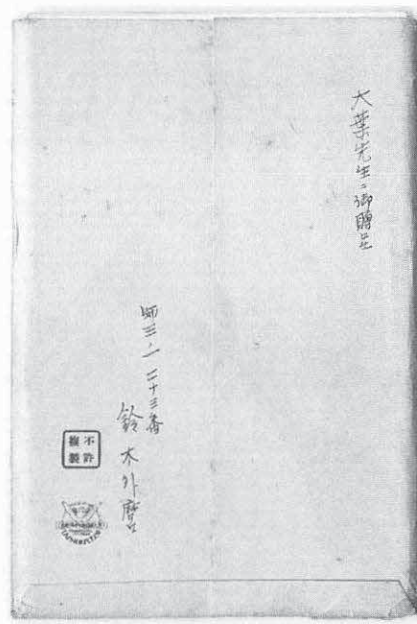 大葉先生ニ御贈呈
師三ノ一 二十三番
鈴木外麿
不許
複製